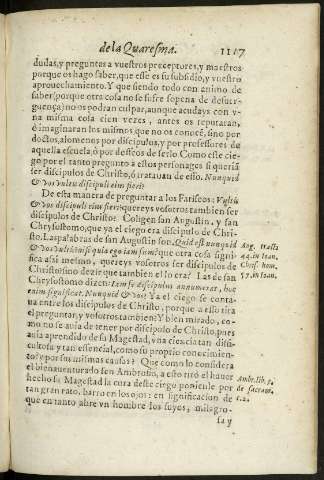 de la Quaresma. 1117
dudas, y preguntes a vuestros preceptores, y maestros
porque os hago saber, que esse es su subsidio, y vuestro
aprouechamiento. Y que siendo todo con animo de
saber (porque otra cosa no se sufre sopena de desuer-
guença) no os podran culpar, aunque acudays con v-
na misma cosa cien vezes, antes os reputaran,
ò imaginaran los mismos que no os conocē, sino por
doctos, alomenos por discipulos, y por professores de
aquella escuela; ò por desseos de serlo Como este cie-
go por el tanto preguntò a estos personages si queriā
ser discipulos de Christo, ò tratauan de esso. Nunquid
& vos vultis discipuli eius fieri?
De esta manera de preguntar a los Fariseos: Vultis
& vos discipuli eius fieri: quereys vosotros tambien ser
discipulos de Christo? Coligen san Augustin, y san
Chrysostomo, que ya el ciego era discipulo de Chri-
sto. Las palabras de san Augustin son. Quid est nunquid
& vos vultis? nisi quia ego iam sum? que otra cosa signi-
fica assi mesmo, quereys vosotros ser discipulos de
Christo? sino dezir que tambien el lo era? Las de san
Chrysostomo dizen: Iam se discipulum annumerat, hoc
enim significat. Nunquid & vos? Ya el ciego se conta-
ua entre los discipulos de Christo, porque a esso tira
el preguntar, y vosotros tambien? Y bien mirado, co-
mo no se auia de tener por discipulo de Christo, pues
auia aprendido de su Magestad, vna ciēcia tan diffi-
cultosa y tan essencial, como su proprio conocimien-
to? e por sus mismas causas? Que como lo considera
el bienauenturado san Ambrosio, a esto tirò el hauer
hecho su Magestad la cura deste ciego ponie̅dole por
tan gran rato, barro en los ojos: en significacion de
que en tanto abre vn hombre los suyos, milagro-
sa y
Aug. tracta
44. in Ioan.
Chris. hom.
57. in Ioan.
Ambr. lib. 3.
de sacram.
c. 2.